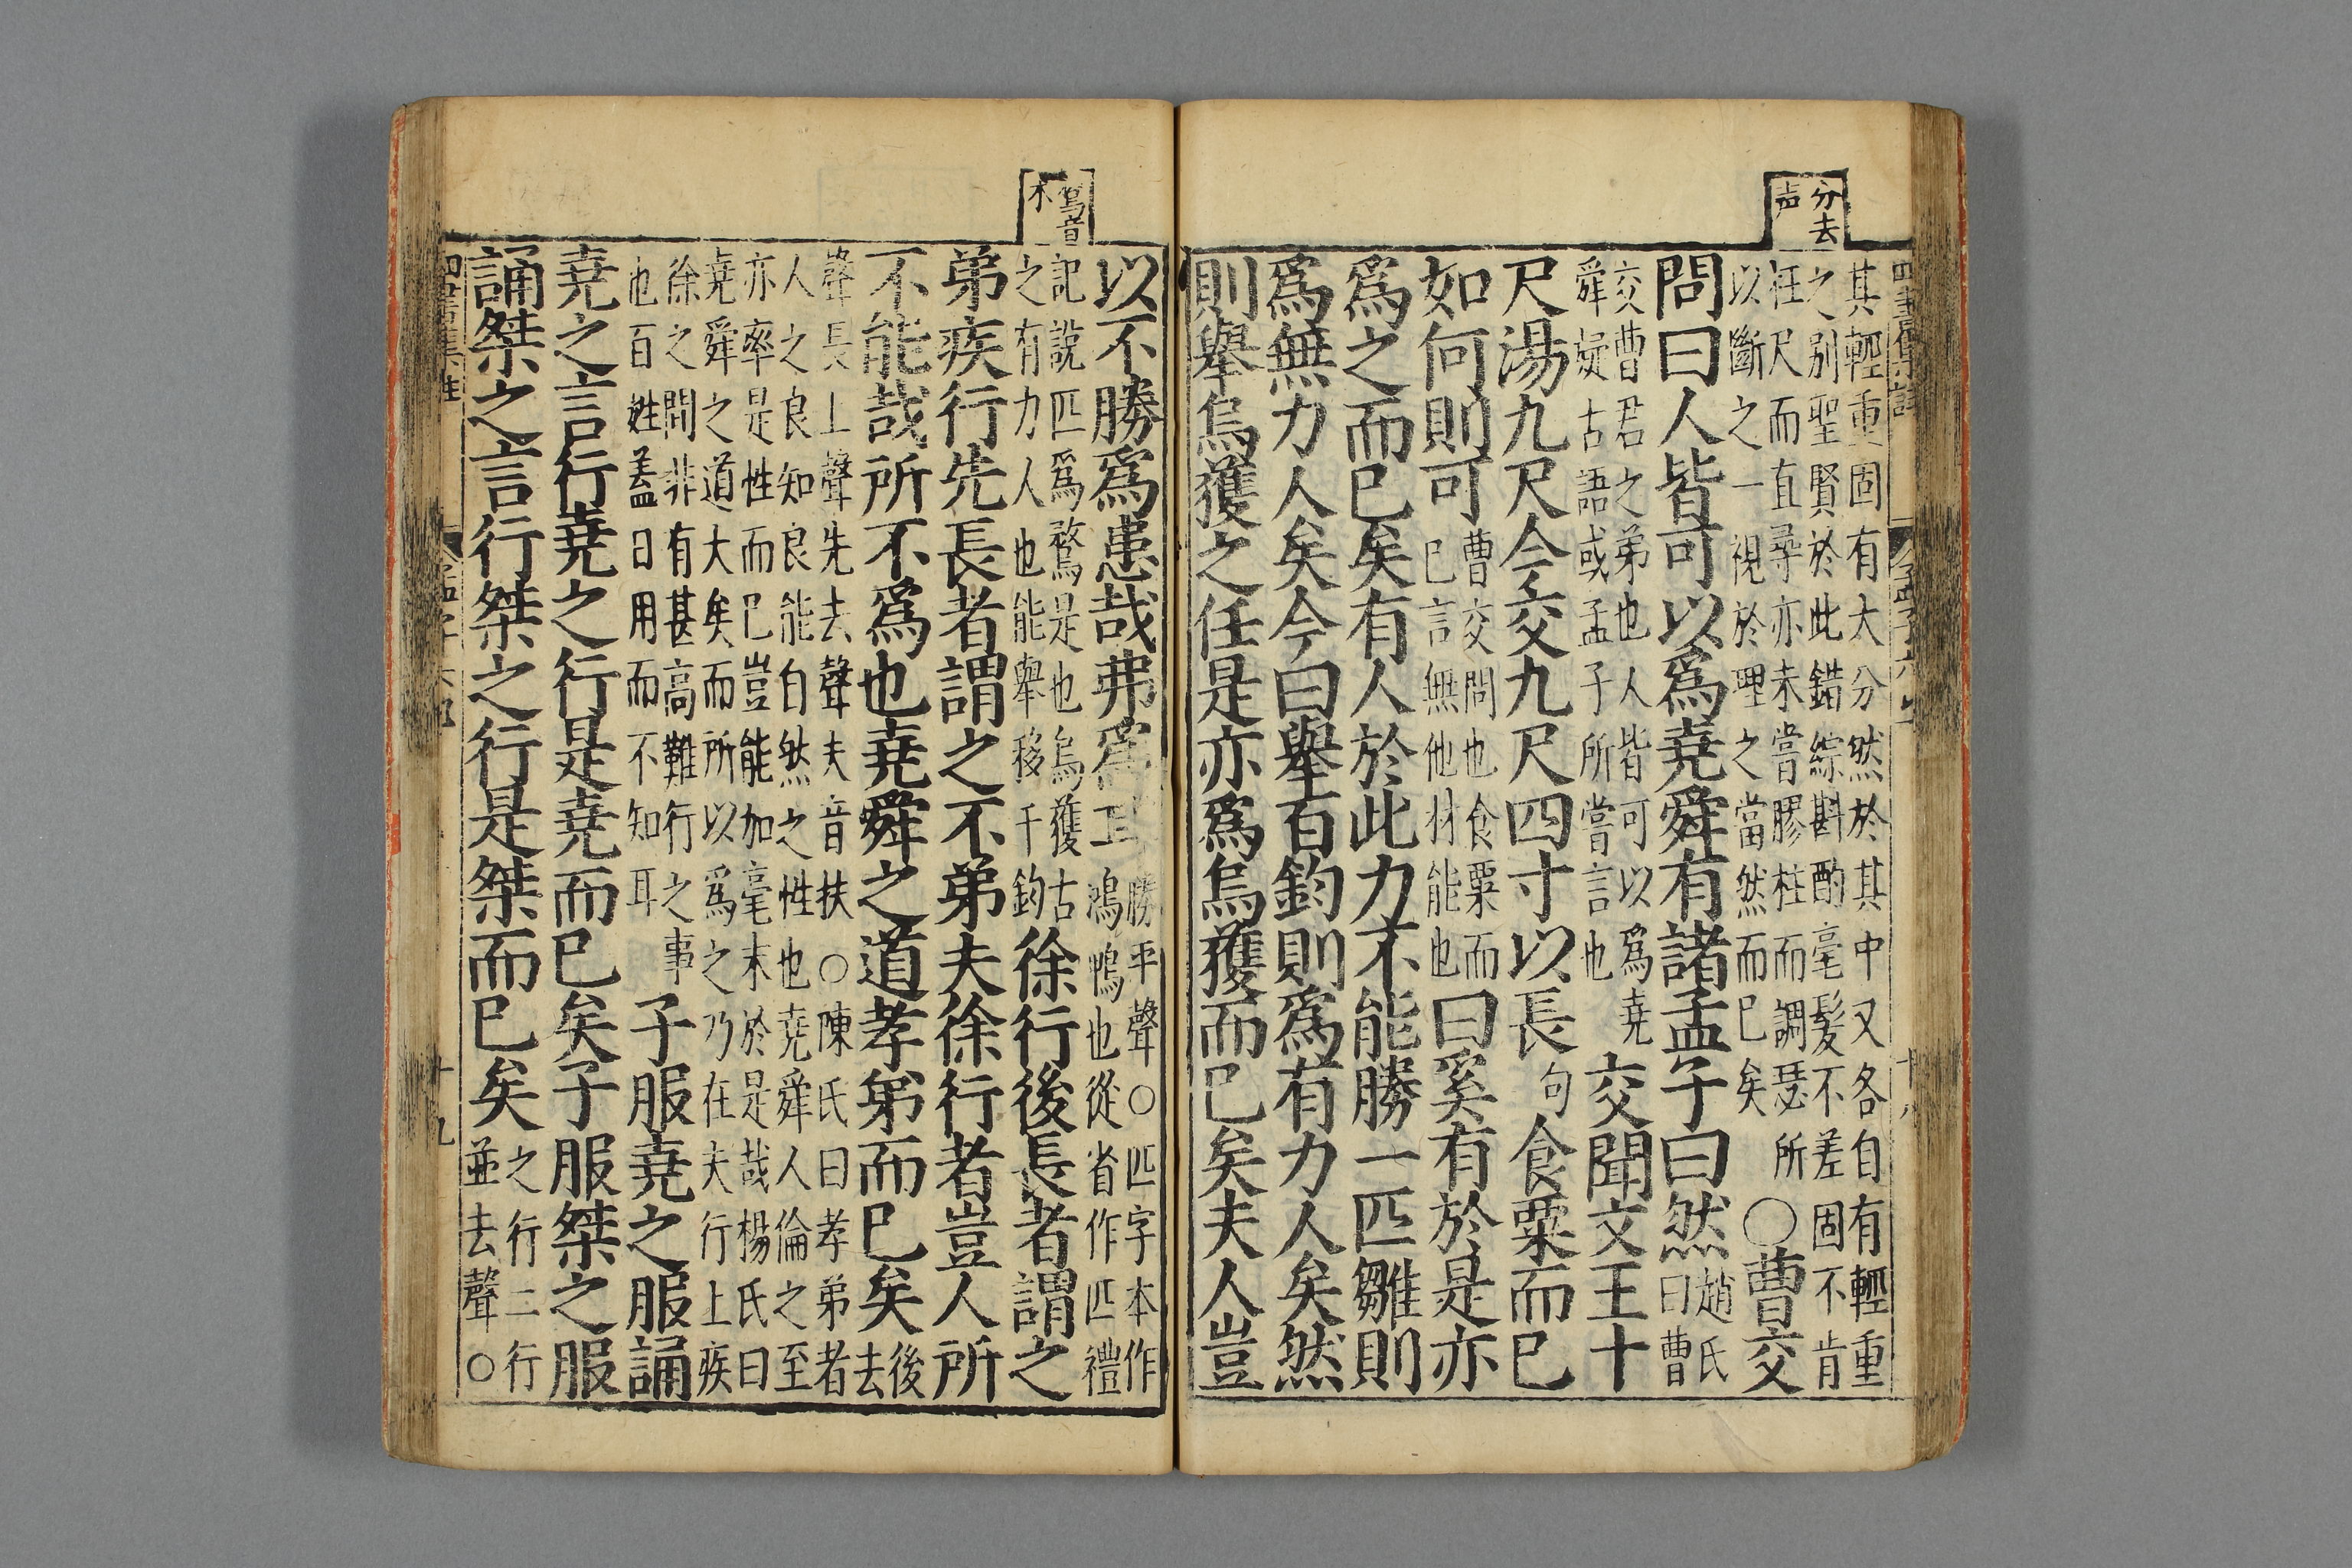 分去
声
其輕重固有大分然於其中又各自有輕重
之別聖賢於此錯綜斟酌毫髮不差固不肯
枉尺而直尋亦未嘗膠柱而調瑟所
以斷之一視於理之當然而已矣
〇曹交
問曰人皆可以爲堯舜有諸孟子曰然
趙氏
曰曹
交曹君之弟也人皆可以爲堯
舜疑古語或孟子所嘗言也
交聞文王十
尺湯九尺今交九尺四寸以長句食粟而已
如何則可
曹交問也食粟而
已言無他材能也
曰奚有於是亦
爲之而已矣有人於此力不能勝一匹雛則
爲無力人矣今曰舉百鈞則爲有力人矣然
則舉烏獲之任是亦爲烏獲而已矣夫人豈
音
木
以不勝爲患哉弗爲耳
勝平聲〇匹字本作
鴻鴨也從省作匹禮
記說匹爲鶩是也烏獲古
之有力人也能舉移千鈞
徐行後長者謂之
弟疾行先長者謂之不弟夫徐行者豈人所
不能哉所不爲也堯舜之道孝弟而已矣
後
去
聲長上聲先去聲夫音扶〇陳氏曰孝弟者
人之良知良能自然之性也堯舜人倫之至
亦率是性而已豈能加毫末於是哉楊氏曰
堯舜之道大矣而所以爲之乃在夫行上疾
徐之間非有甚高難行之事
也百姓蓋日用而不知耳
子服堯之服誦
堯之言行堯之行是堯而已矣子服桀之服
誦桀之言行桀之行是桀而已矣
之行二行
並去聲〇
十九